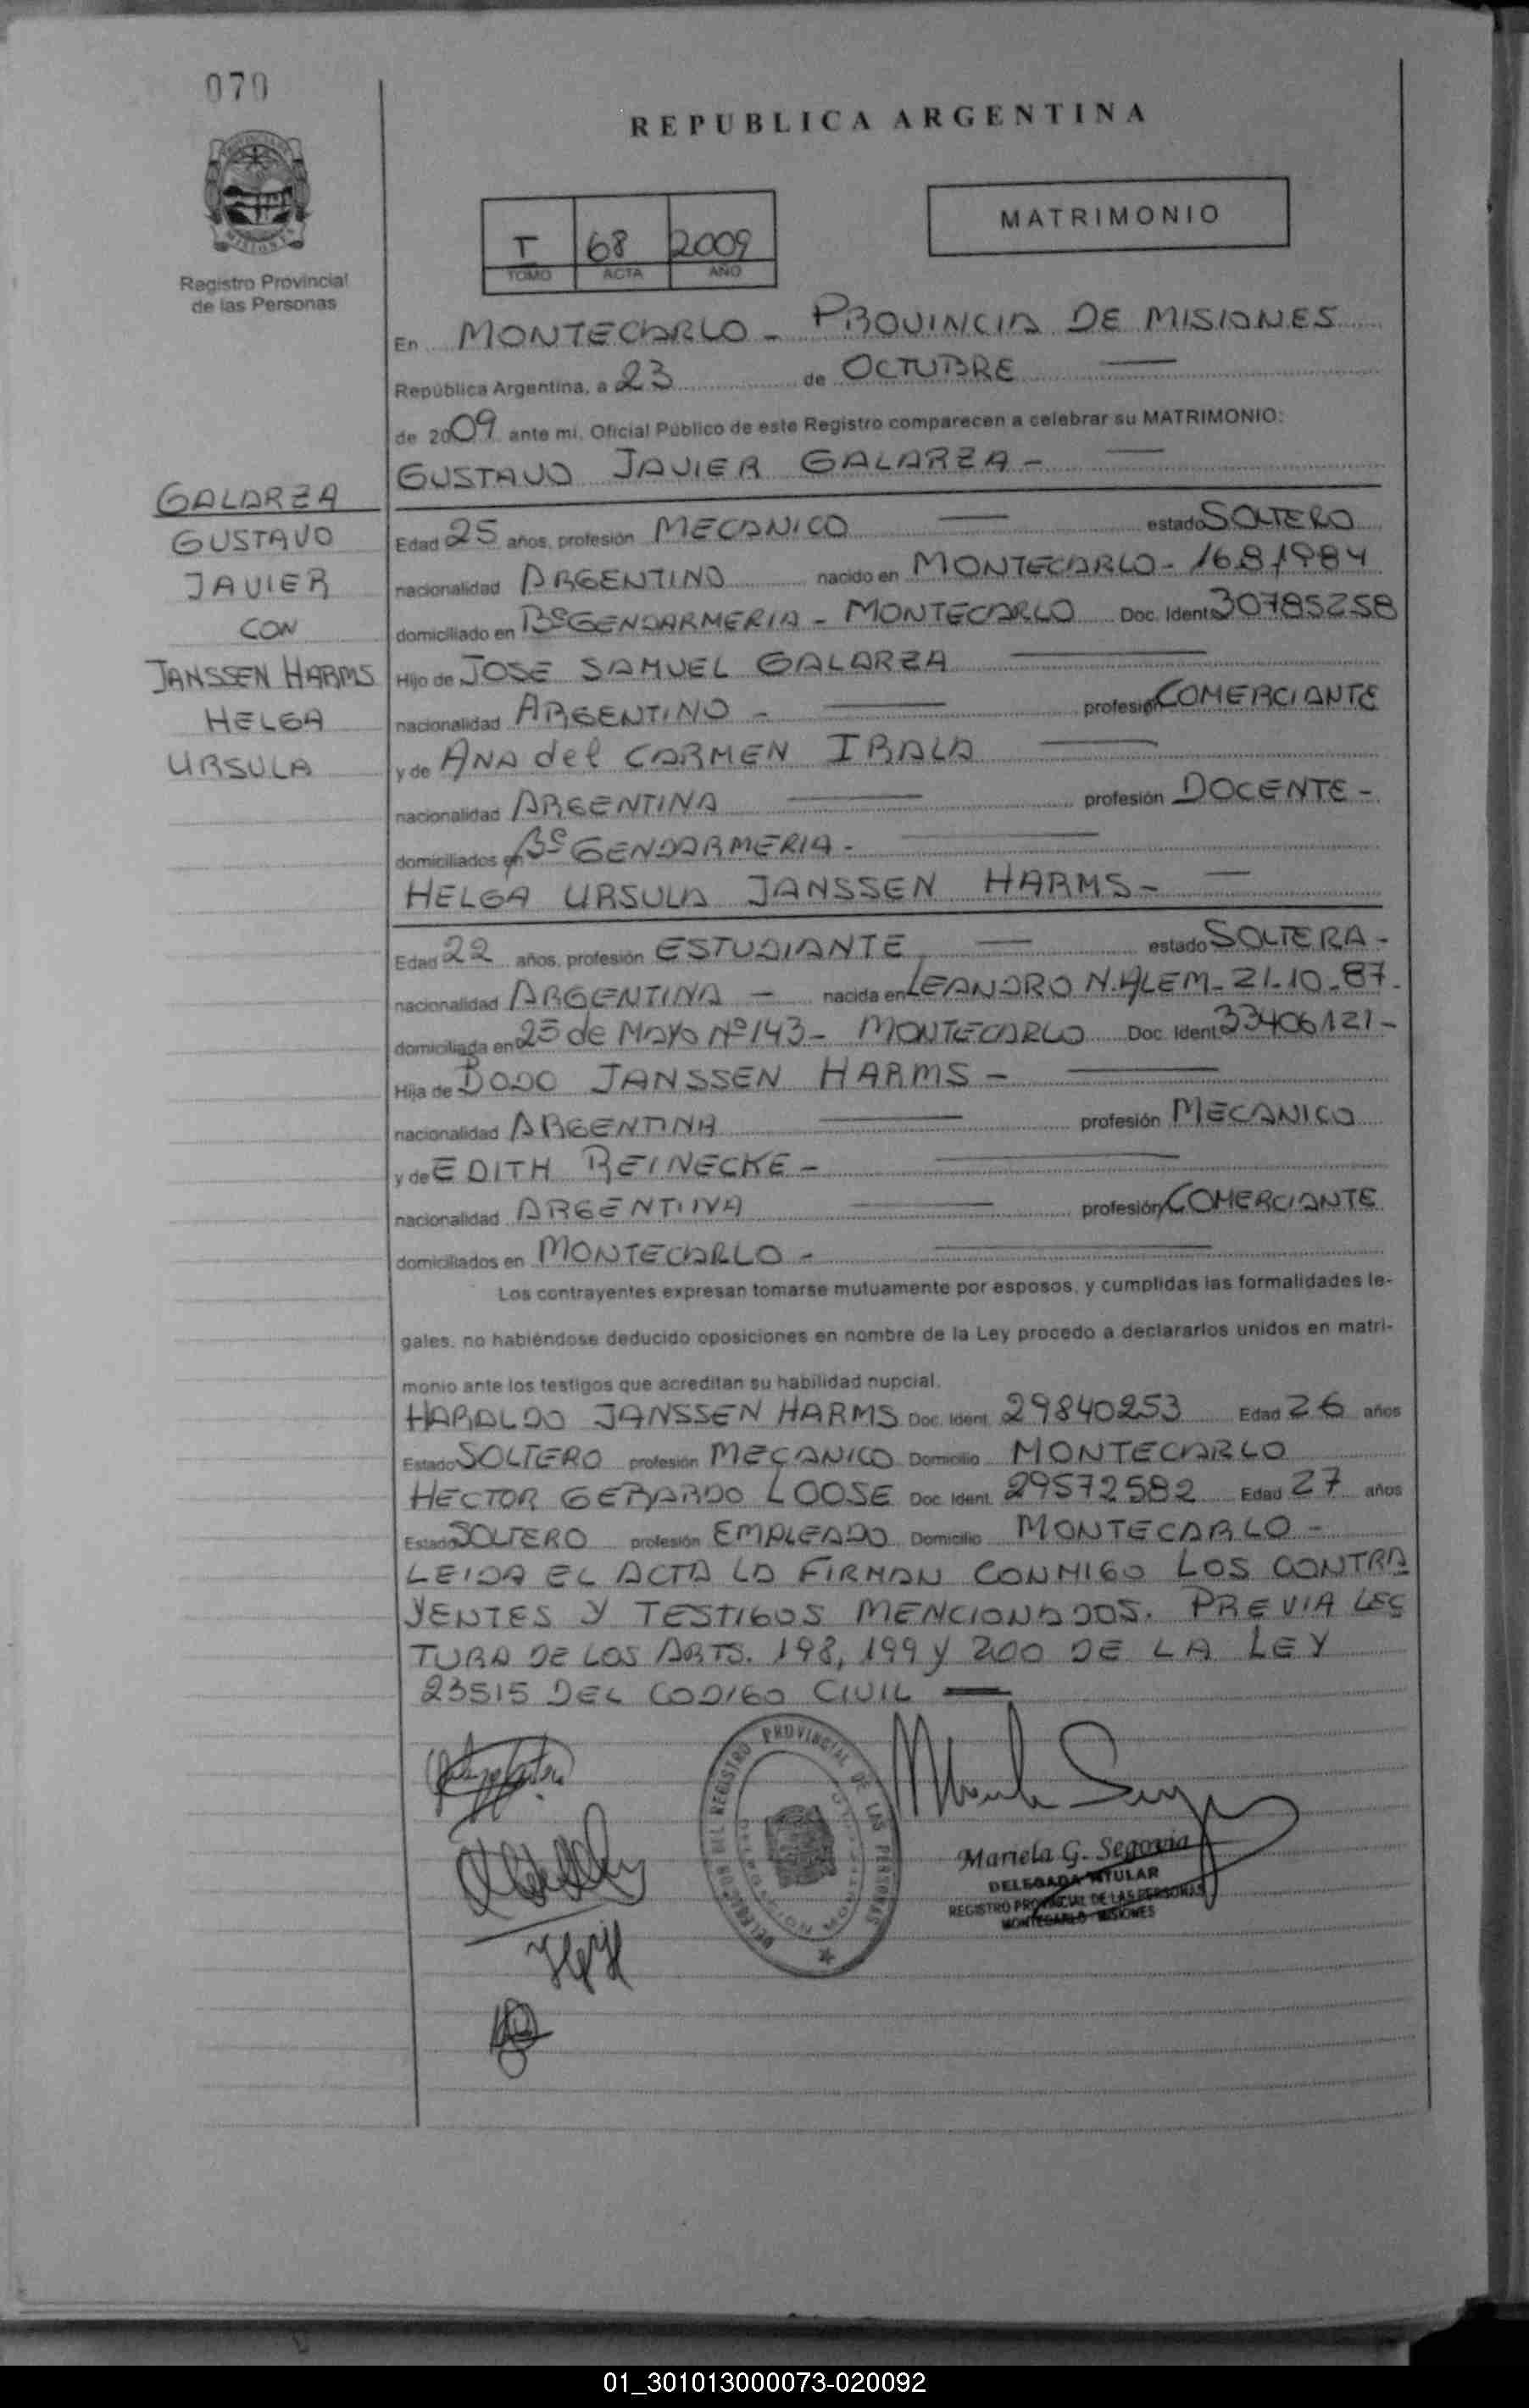 070
REPUBLICA ARGENTINA
MATRIMONIO
I 68 2009
TOMO ACTA AÑO
Registro Provincial
de las Personas
En MONTECARLO - PROVINCIA DE MISIONES
República Argentina, a 23 de OCTUBRE
de 2009 ante mi, Oficial Público de este Registro comparecen a celebrar su MATRIMONIO:
GUSTAVO JAVIER GALARZA -
GALARZA
GUSTAVO
JAVIER
CON
JANSSEN HARMS
HELGA
URSULA
Edad 25 años, profesión MECANICO estado SOLTERO
nacionalidad ARGENTINO nacido en MONTECARLO - 16.8.1984
domiciliado en Bº GENDARMERIA - MONTECARLO Doc. Ident. 30785258
Hijo de JOSE SAMUEL GALARZA
nacionalidad ARGENTINO - profesión COMERCIANTE
y de ANA del CARMEN IRALA
nacionalidad ARGENTINA profesión DOCENTE -
domiciliados en Bº GENDARMERIA -
HELGA URSULA JANSSEN HARMS -
Edad 22 años, profesión ESTUDIANTE estado SOLTERA -
nacionalidad ARGENTINA - nacida en LEANDRO N. ALEM - 21.10.87.
domiciliada en 25 de MAYO Nº 143 - MONTECARLO Doc. Ident. 33406121 -
Hija de BODO JANSSEN HARMS -
nacionalidad ARGENTINA profesión MECANICO
y de EDITH REINECKE -
nacionalidad ARGENTINA profesión COMERCIANTE
domiciliados en MONTECARLO -
Los contrayentes expresan tomarse mutuamente por esposos, y cumplidas las formalidades le-
gales, no habiéndose deducido oposiciones en nombre de la Ley procedo a declararlos unidos en matri-
monio ante los testigos que acreditan su habilidad nupcial.
HARALDO JANSSEN HARMS Doc. Ident. 29840253 Edad 26 años
Estado SOLTERO profesión MECANICO Domicilio MONTECARLO
HECTOR GERARDO LOOSE Doc. Ident. 29572582 Edad 27 años
Estado SOLTERO profesión EMPLEADO Domicilio MONTECARLO -
LEIDA EL ACTA LA FIRMAN CONMIGO LOS CONTRA
YENTES Y TESTIGOS MENCIONADOS. PREVIA LEC
TURA DE LOS ARTS. 198, 199 y 200 DE LA LEY
23515 DEL CODIGO CIVIL
DELEGACION DEL REGISTRO PROVINCIAL DE LAS PERSONAS
Mariela G. Segovia
DELEGADA TITULAR
REGISTRO PROVINCIAL DE LAS PERSONAS
MONTECARLO - MISIONES
01_301013000073-020092